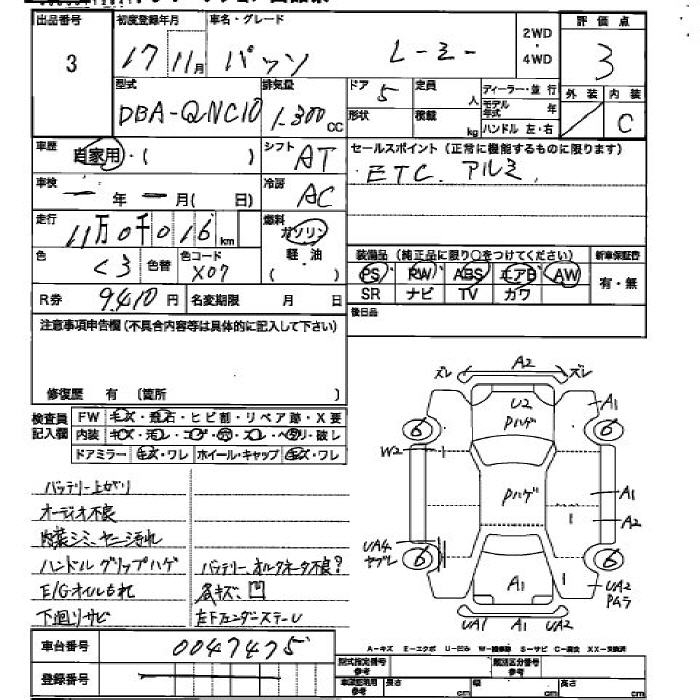 出品番号 初度登録年月 車名・グレード 2WD・4WD 評価点
3 17 11月 パッソ レーミー 3
型式 排気量 ドア 5 定員 人 ディーラー・並行 外装 内装
DBA-QNC10 1.300cc 形状 積載 kg モデル年式 年 C
ハンドル 左・右
車歴 自家用・( ) シフト AT セールスポイント(正常に機能するものに限ります)
ETC. アルミ
車検 ー年ー月( 日) 冷房 AC
走行 11万0千016km 燃料 ガソリン
軽・油
( )
色 くろ 色替 色コード X07 装備品(純正品に限り○をつけてください) 新車保証書
PS PW ABS エアB AW 有・無
SR ナビ TV カワ
R券 9410円 名変期限 月 日 後日品
注意事項申告欄(不具合内容等は具体的に記入して下さい)
修復歴 有 (箇所 )
検査員記入欄 FW キズ・飛石・ヒビ割・リペア跡・X要
内装 キズ・汚レ・コゲ・穴・スレ・ヘタリ・破レ
ドアミラー キズ・ワレ ホイール・キャップ キズ・ワレ
ズレ A2 ズレ
U2
Pハゲ
A1
6 6
W2
Pハゲ
A1
A2
UA4
ヤブレ
6 6
A1
UA2
UA1 A1 UA2
バッテリー上がり
オーディオ不良
内装シミ、ヤニ汚れ
ハンドルグリップハゲ バッテリー、オルタネータ不良?
E/Gオイルもれ 凹
下廻りサビ
車台番号 0047475
登録番号
A-キズ E-エクボ U-凹み W-補修跡 S-サビ C-腐食 XX-交換済
型式指定番号 参考 類別区分番号 参考
長さ cm 幅 cm 高さ cm